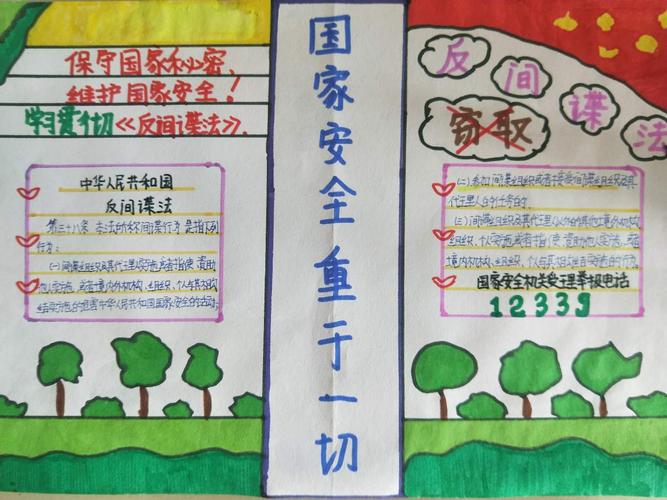 保守国家秘密,
维护国家安全！
学习贯彻《反间谍法》.
中华人民共和国
反间谍法
第三十八条 本法所称间谍行为是指下列
行为：
(一)间谍组织及其代理人实施或者指使、资助
他人实施,或者境内外机构、组织、个人与其相勾
结实施的危害中华人民共和国国家安全的活动;
国家安全重于一切
反间谍法
窃取
(二)参加间谍组织或者接受间谍组织及其
代理人的任务的;
(三)间谍组织及其代理人以外的其他境外机构、
组织、个人实施或者指使、资助他人实施,或者
境内机构、组织、个人与其相勾结实施的行为.
国家安全机关受理举报电话
12339